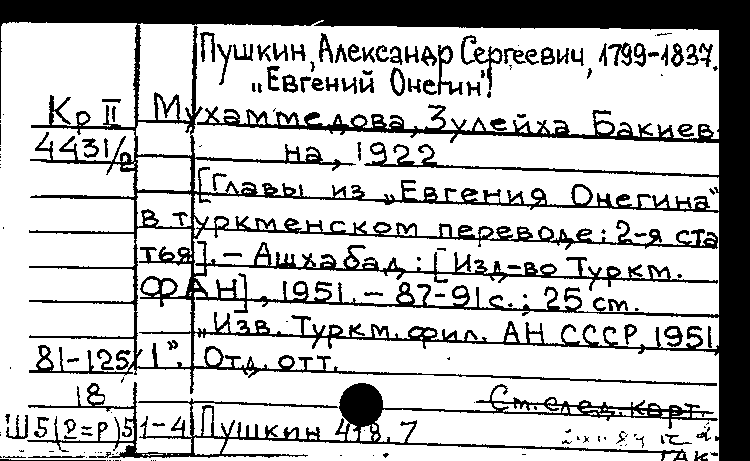 Пушкин, Александр Сергеевич, 1799-1837.
„Евгений Онегин".
Кр II Мухаммедова, Зулейха Бакиев-
4431/2 на, 1922
[Главы из „Евгения Онегина"
в туркменском переводе: 2-я ста
тья]. - Ашхабад: [Изд-во Туркм.
ФАН], 1951. - 87-91 с.; 25 см.
„Изв. Туркм. фил. АН СССР, 1951,
81-125/ 1". Отд. отт.
18 См. след. карт.
Ш5(2=Р)5 1-4 Пушкин 418.7